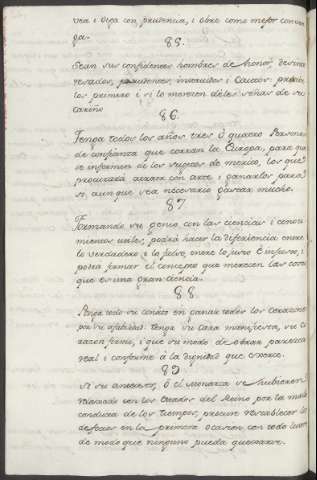 vea i oiga con prudencia, i obre como mejor conven
ga.
85.
Sean sus confidentes hombres de honor, desinte
resados, prudentes, instruidos i Cautos:
los primero i si lo merecen deles señas de su
cariño
86.
Tenga todos los años, tres ó quatro Personas
de confianza que corran la Europa, para que
se informen de los sugetos de merito, los que
procurará atraer con arte i ganarlos para
si, aunque sea necesario gastar mucho.
87
Formando su genio con las ciencias i conoci
mientos utiles, podrá hacer la diferiencia entre
lo verdadero i lo falso, entre lo justo é injusto, i
podrá formar el concepto que merecen las cosas
que es una gran ciencia.
88.
Ponga todo su conato en ganar todos los corazones
por su afabilidad. tenga su cara manifiesta, su co
razon feroso, i que su modo de obrar parezca
real i conforme á la dignidad que exerce.
89
Si su antecesor, ó el Monarca se hubieren
relaxado con los Criados del Reino por la mala
conducta de los tiempos, procure restablecer los
defectos en la primera ocasion con todo
de modo que ninguno pueda quexarse.